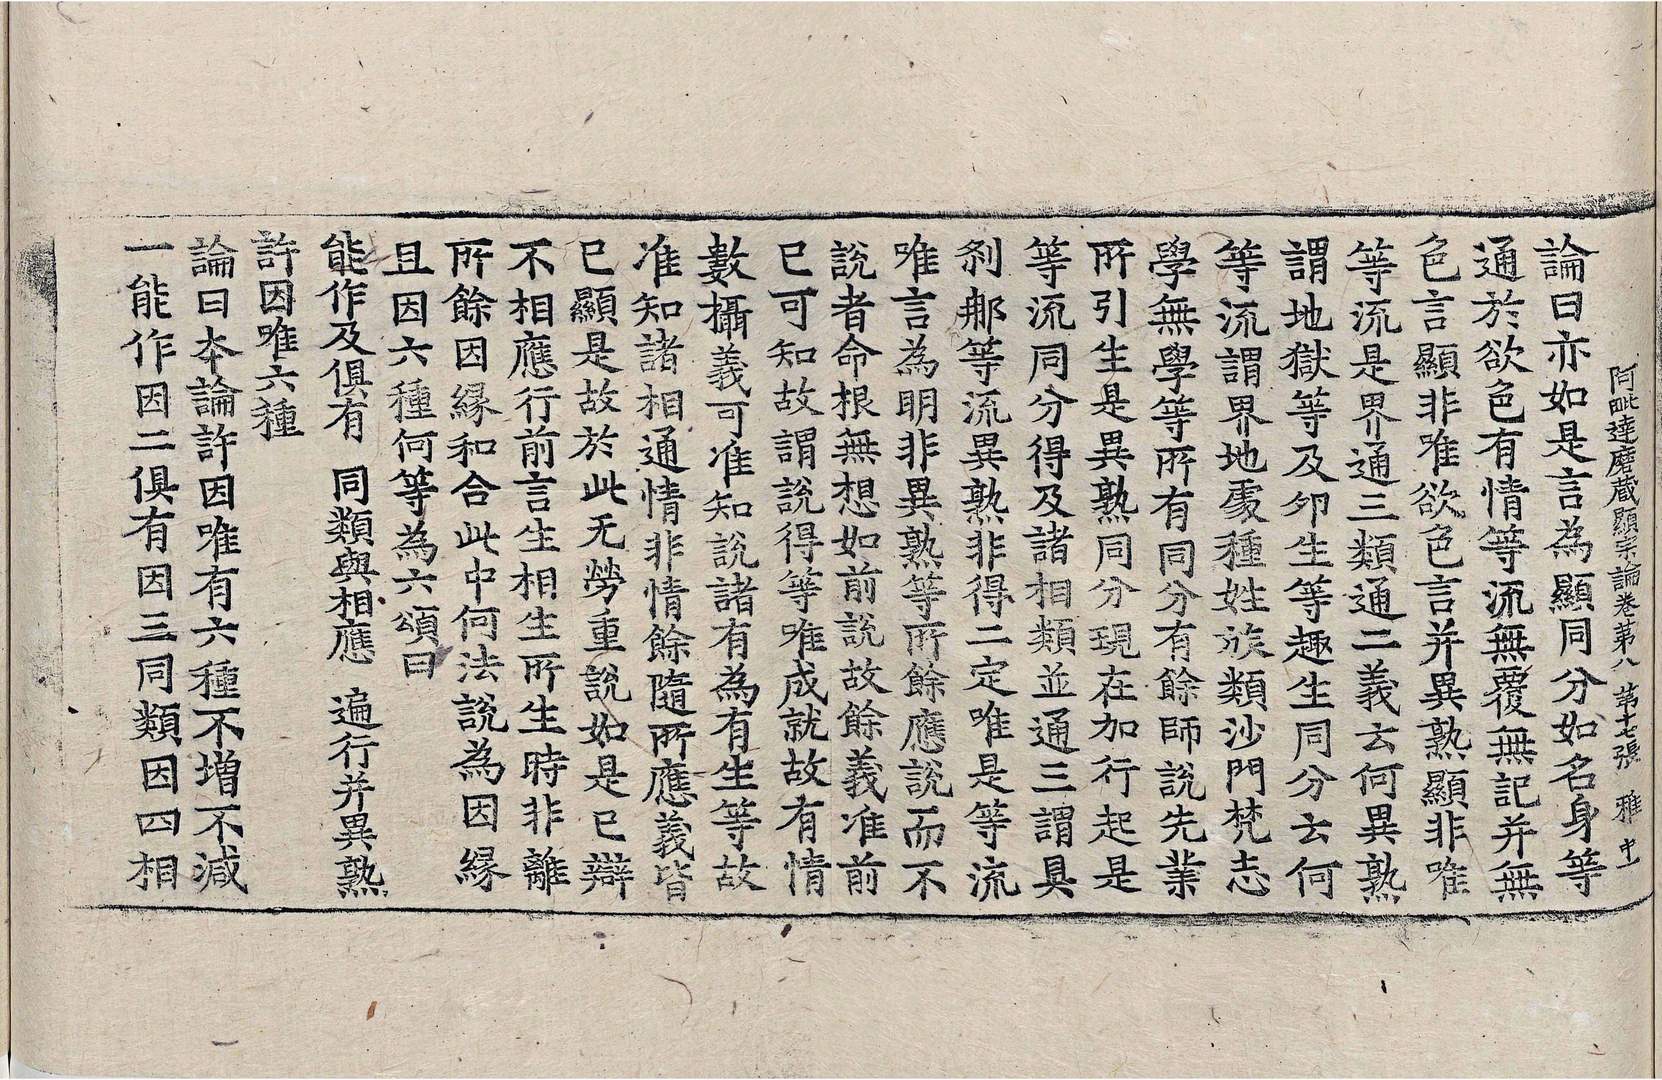 阿毗達磨蔵顯宗論卷苐八 苐十七張 雅
論曰亦如是言為顯同分如名身等
通於欲色有情等流無覆無記并無
色言顯非唯欲色言并異熟顯非唯
等流是界通三類通二義云何異熟
謂地獄等及卵生等趣生同分云何
等流謂界地處種姓族類沙門梵志
學無學等所有同分有餘師說先業
所引生是異熟同分現在加行起是
等流同分得及諸相類並通三謂具
刹那等流異熟非得二定唯是等流
唯言為明非異熟等所餘應說而不
說者命根無想如前說故餘義准前
已可知故謂說得等唯成就故有情
數攝義可准知說諸有為有生等故
准知諸相通情非情餘隨所應義皆
已顯是故於此无勞重說如是已辯
不相應行前言生相生所生時非離
所餘因緣和合此中何法說為因緣
且因六種何等為六頌曰
能作及俱有 同類與相應 遍行并異熟
許因唯六種
論曰本論許因唯有六種不增不減
一能作因二俱有因三同類因四相